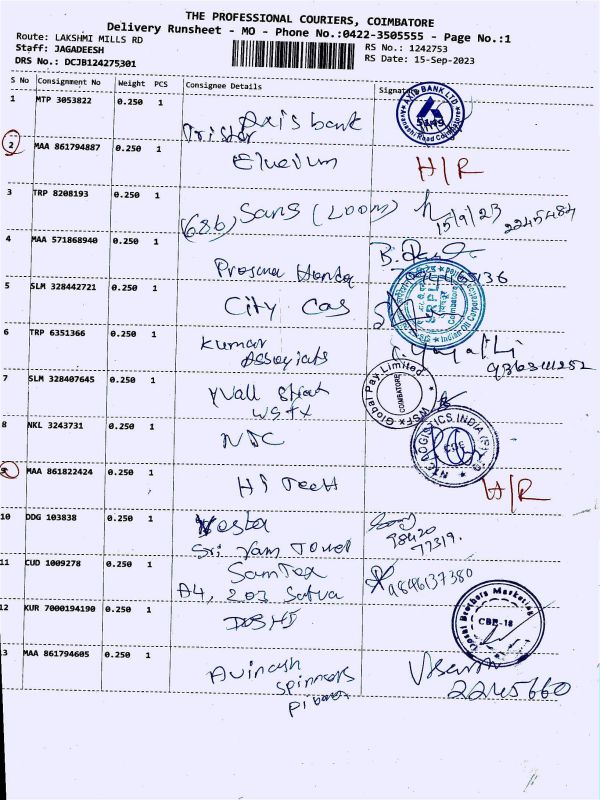 THE PROFESSIONAL COURIERS, COIMBATORE
Delivery Runsheet - MO - Phone No.:0422-3505555 - Page No.:1
Route: LAKSHMI MILLS RD
RS No.: 1242753
Staff: JAGADEESH
RS Date: 15-Sep-2023
DRS No.: DCJB124275301
S No Consignment No Weight PCS Consignee Details Signature
1 MTP 3053822 0.250 1 Axis bank
AXIS BANK LTD
2 MAA 861794887 0.250 1 H/R
3 TRP 8208193 0.250 1 (686) Sans (Loom) 15/9/23 2245484
4 MAA 571868940 0.250 1 Honda
5 SLM 328442721 0.250 1 City Gas
SRPL Coimbatore Indian Oil
6 TRP 6351366 0.250 1 Kumar
7 SLM 328407645 0.250 1 Wall Street
WSFX
WSFx Global Pay Limited COIMBATORE
8 NKL 3243731 0.250 1 NTC
LOGISTICS INDIA (P)
9 MAA 861822424 0.250 1 Hi Tech H/R
10 DDG 103838 0.250 1 Vesta
Sri Ram Tower
98420
77319.
11 CUD 1009278 0.250 1 Samtex
A4, 203 Satva
9846137380
12 KUR 7000194190 0.250 1 DOSHI
Doshi Brothers Marketing CBE-18
13 MAA 861794605 0.250 1 Avinash
spinners
2245660